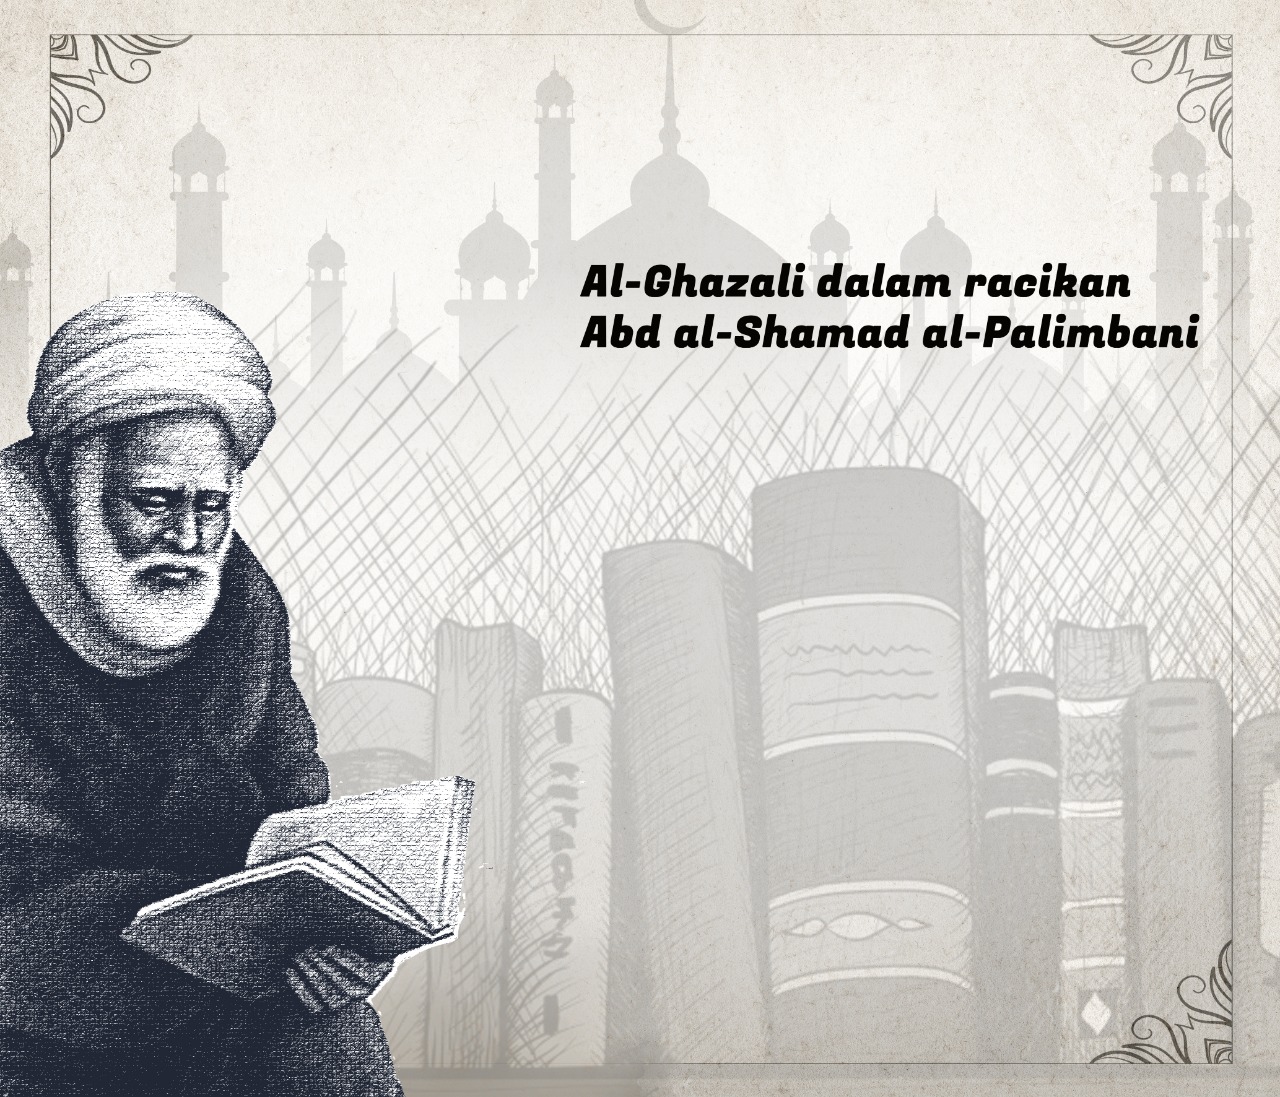 Al-Ghazali dalam racikan
Abd al-Shamad al-Palimbani